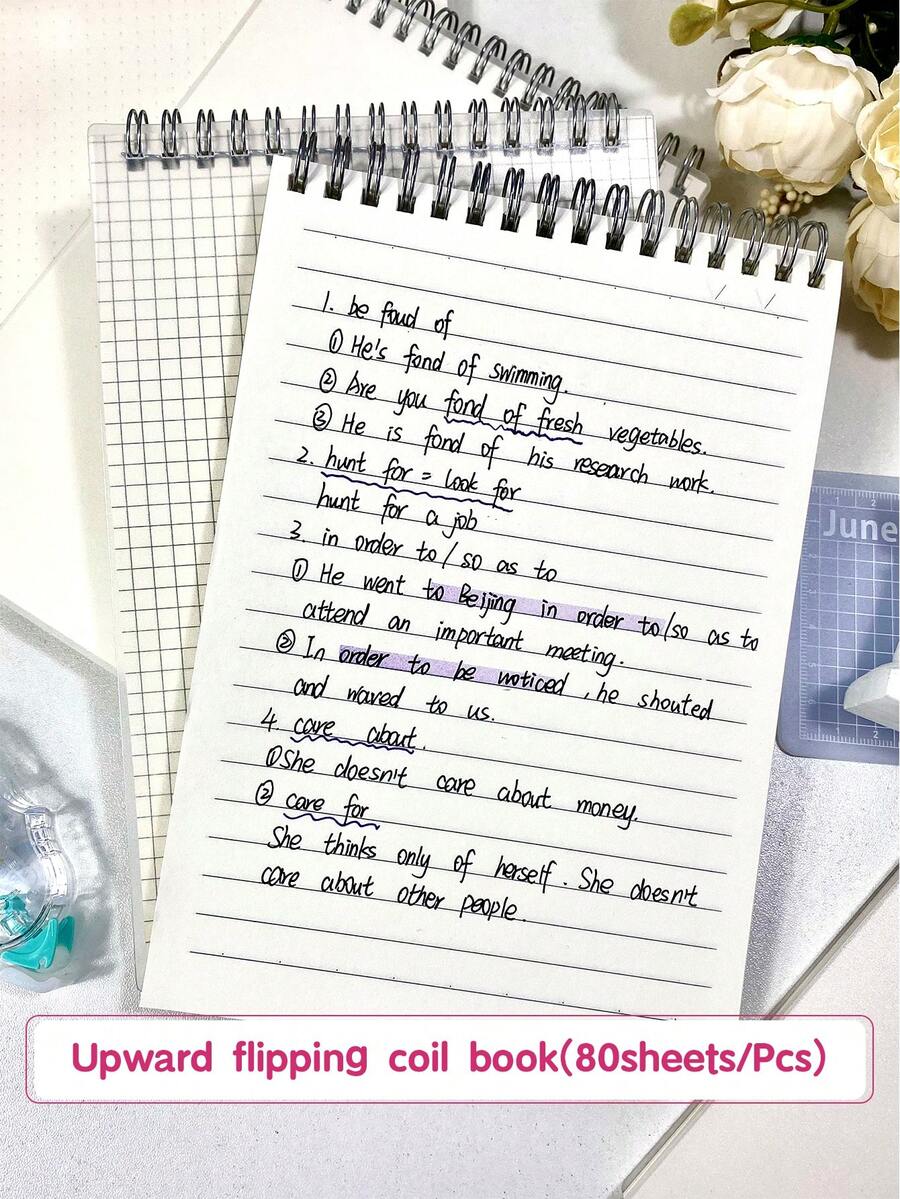 1. be foud of
① He's fond of swimming.
② Are you fond of fresh vegetables.
③ He is fond of his research work.
2. hunt for = look for
hunt for a job
3. in order to / so as to
① He went to Beijing in order to/so as to
attend an important meeting.
② In order to be noticed , he shouted
and waved to us.
4. care about.
① She doesn't care about money.
② care for
She thinks only of herself. She doesn't
care about other people.
June
Upward flipping coil book(80sheets/Pcs)